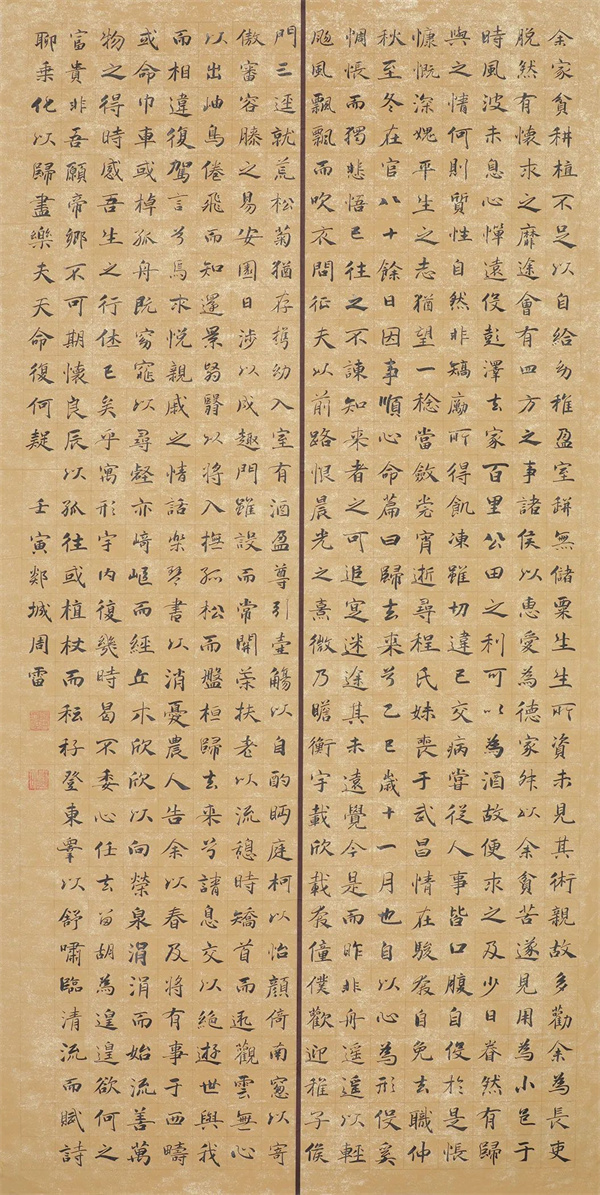 余家貧耕植不足以自給幼稚盈室缾無儲粟生生所資未見其術親故多勸余為長吏
脫然有懷求之靡途會有四方之事諸侯以惠愛為德家叔以余貧苦遂見用為小邑于
時風波未息心憚遠役彭澤去家百里公田之利可以為酒故便求之及少日眷然有歸
與之情何則質性自然非矯厲所得飢凍雖切違己交病嘗從人事皆口腹自役於是悵
慷慨深媿平生之志猶望一稔當斂裳宵逝尋程氏妹喪于武昌情在駿奔自免去職仲
秋至冬在官八十餘日因事順心命篇曰歸去來兮乙巳歲十一月也自以心為形役奚
惆悵而獨悲悟已往之不諫知來者之可追寔迷途其未遠覺今是而昨非舟遙遙以輕
颺風飄飄而吹衣問征夫以前路恨晨光之熹微乃瞻衡宇載欣載奔僮僕歡迎稚子候
門三逕就荒松菊猶存携幼入室有酒盈尊引壺觴以自酌眄庭柯以怡顏倚南窗以寄
傲審容膝之易安園日涉以成趣門雖設而常關策扶老以流憩時矯首而遐觀雲無心
以出岫鳥倦飛而知還景翳翳以將入撫孤松而盤桓歸去來兮請息交以絕遊世與我
而相違復駕言兮焉求悅親戚之情話樂琴書以消憂農人告余以春及將有事于西疇
或命巾車或棹孤舟既窈窕以尋壑亦崎嶇而經丘木欣欣以向榮泉涓涓而始流善萬
物之得時感吾生之行休已矣乎寓形宇內復幾時曷不委心任去留胡為遑遑欲何之
富貴非吾願帝鄉不可期懷良辰以孤往或植杖而耘耔登東皋以舒嘯臨清流而賦詩
聊乘化以歸盡樂夫天命復何疑 壬寅郯城周雷